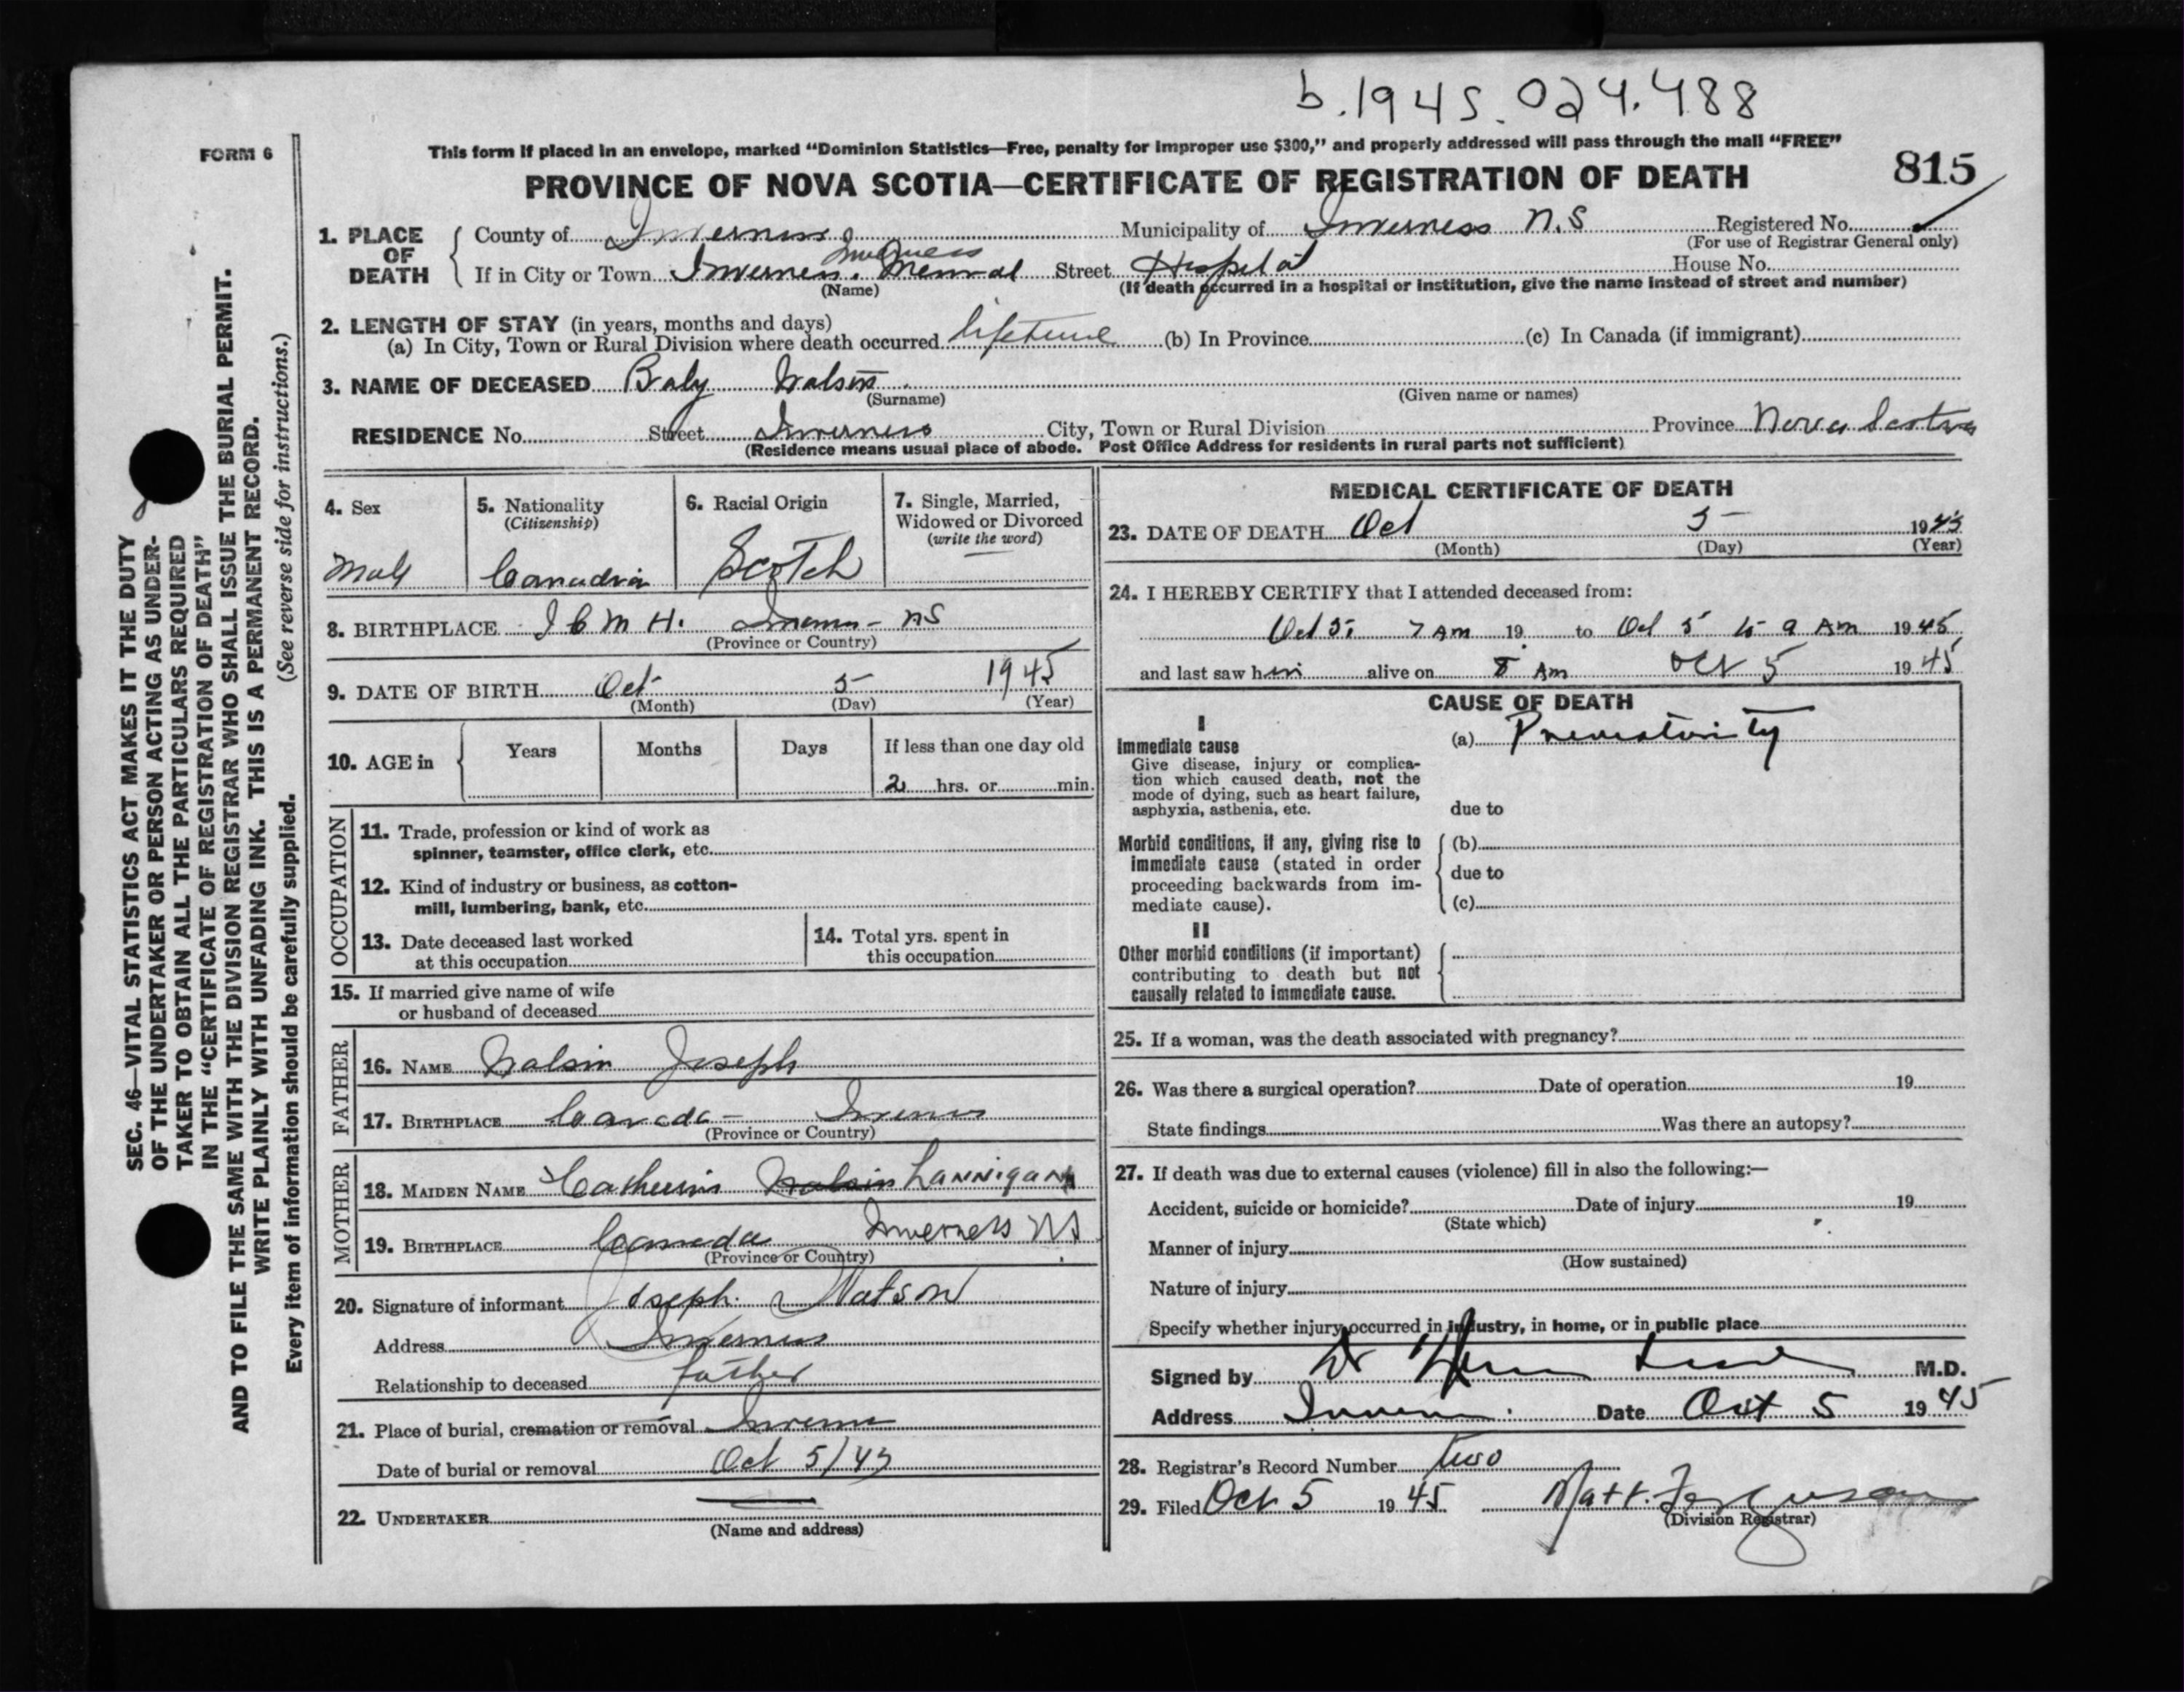 b.1945.024.488
FORM 6
This form if placed in an envelope, marked “Dominion Statistics—Free, penalty for improper use $300,” and properly addressed will pass through the mail “FREE”
PROVINCE OF NOVA SCOTIA—CERTIFICATE OF REGISTRATION OF DEATH
815
1. PLACE OF DEATH
County of Inverness Municipality of Inverness N.S Registered No.
(For use of Registrar General only)
Inverness
If in City or Town Inverness. Memorial Street Hospital House No.
(Name) (If death occurred in a hospital or institution, give the name instead of street and number)
2. LENGTH OF STAY (in years, months and days)
(a) In City, Town or Rural Division where death occurred lifetime (b) In Province (c) In Canada (if immigrant)
3. NAME OF DECEASED Baby Watson
(Surname) (Given name or names)
RESIDENCE No. Street Inverness City, Town or Rural Division Province Nova Scotia
(Residence means usual place of abode. Post Office Address for residents in rural parts not sufficient)
4. Sex
Male
5. Nationality
(Citizenship)
Canadian
6. Racial Origin
Scotch
7. Single, Married,
Widowed or Divorced
(write the word)
8. BIRTHPLACE I C M H. Inverness - NS
(Province or Country)
9. DATE OF BIRTH Oct 5 1945
(Month) (Day) (Year)
10. AGE in Years Months Days If less than one day old
2 hrs. or min.
OCCUPATION
11. Trade, profession or kind of work as
spinner, teamster, office clerk, etc.
12. Kind of industry or business, as cotton-
mill, lumbering, bank, etc.
13. Date deceased last worked
at this occupation
14. Total yrs. spent in
this occupation
15. If married give name of wife
or husband of deceased
FATHER
16. NAME Watson Joseph
17. BIRTHPLACE Canada - Inverness
(Province or Country)
MOTHER
18. MAIDEN NAME Catherine Watson Lannigan
19. BIRTHPLACE Canada Inverness NS
(Province or Country)
20. Signature of informant Joseph Watson
Address Inverness
Relationship to deceased father
21. Place of burial, cremation or removal Inverness
Date of burial or removal Oct 5/45
22. UNDERTAKER
(Name and address)
MEDICAL CERTIFICATE OF DEATH
23. DATE OF DEATH Oct 5 1945
(Month) (Day) (Year)
24. I HEREBY CERTIFY that I attended deceased from:
Oct 5 7 AM 19 to Oct 5 to 9 AM 1945
and last saw him alive on 8 Am Oct 5 1945
CAUSE OF DEATH
I
Immediate cause
Give disease, injury or complica-
tion which caused death, not the
mode of dying, such as heart failure,
asphyxia, asthenia, etc.
(a) Prematurity
due to
Morbid conditions, if any, giving rise to
immediate cause (stated in order
proceeding backwards from im-
mediate cause).
(b)
due to
(c)
II
Other morbid conditions (if important)
contributing to death but not
causally related to immediate cause.
25. If a woman, was the death associated with pregnancy?
26. Was there a surgical operation? Date of operation 19
State findings Was there an autopsy?
27. If death was due to external causes (violence) fill in also the following:—
Accident, suicide or homicide? Date of injury 19
(State which)
Manner of injury
(How sustained)
Nature of injury
Specify whether injury occurred in industry, in home, or in public place
Signed by Dr M.D.
Address Inverness Date Oct 5 1945
28. Registrar's Record Number two
29. Filed Oct 5 1945 Matt. Ferguson
(Division Registrar)
SEC. 46—VITAL STATISTICS ACT MAKES IT THE DUTY
OF THE UNDERTAKER OR PERSON ACTING AS UNDER-
TAKER TO OBTAIN ALL THE PARTICULARS REQUIRED
IN THE “CERTIFICATE OF REGISTRATION OF DEATH”
AND TO FILE THE SAME WITH THE DIVISION REGISTRAR WHO SHALL ISSUE THE BURIAL PERMIT.
WRITE PLAINLY WITH UNFADING INK. THIS IS A PERMANENT RECORD.
Every item of information should be carefully supplied. (See reverse side for instructions.)